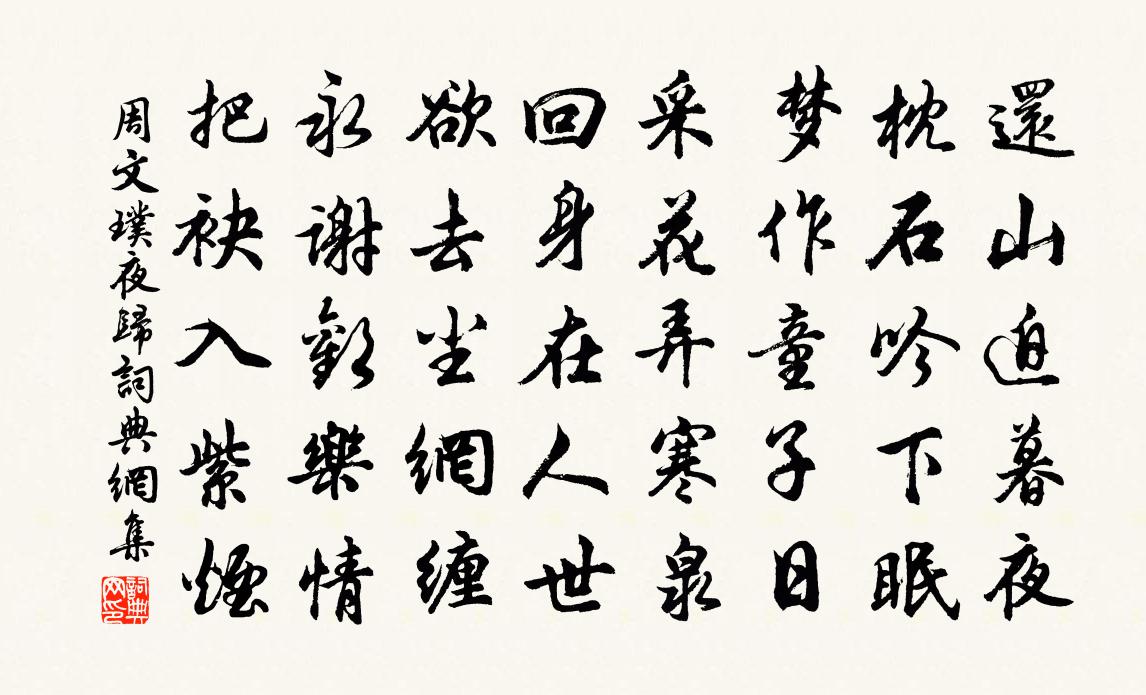 還山迫暮夜
枕石吟下眠
梦作童子日
采花弄寒泉
回身在人世
欲去尘網纏
永謝歡樂情
把袂入紫煙
周文璞夜歸詞典網集
詞典网印